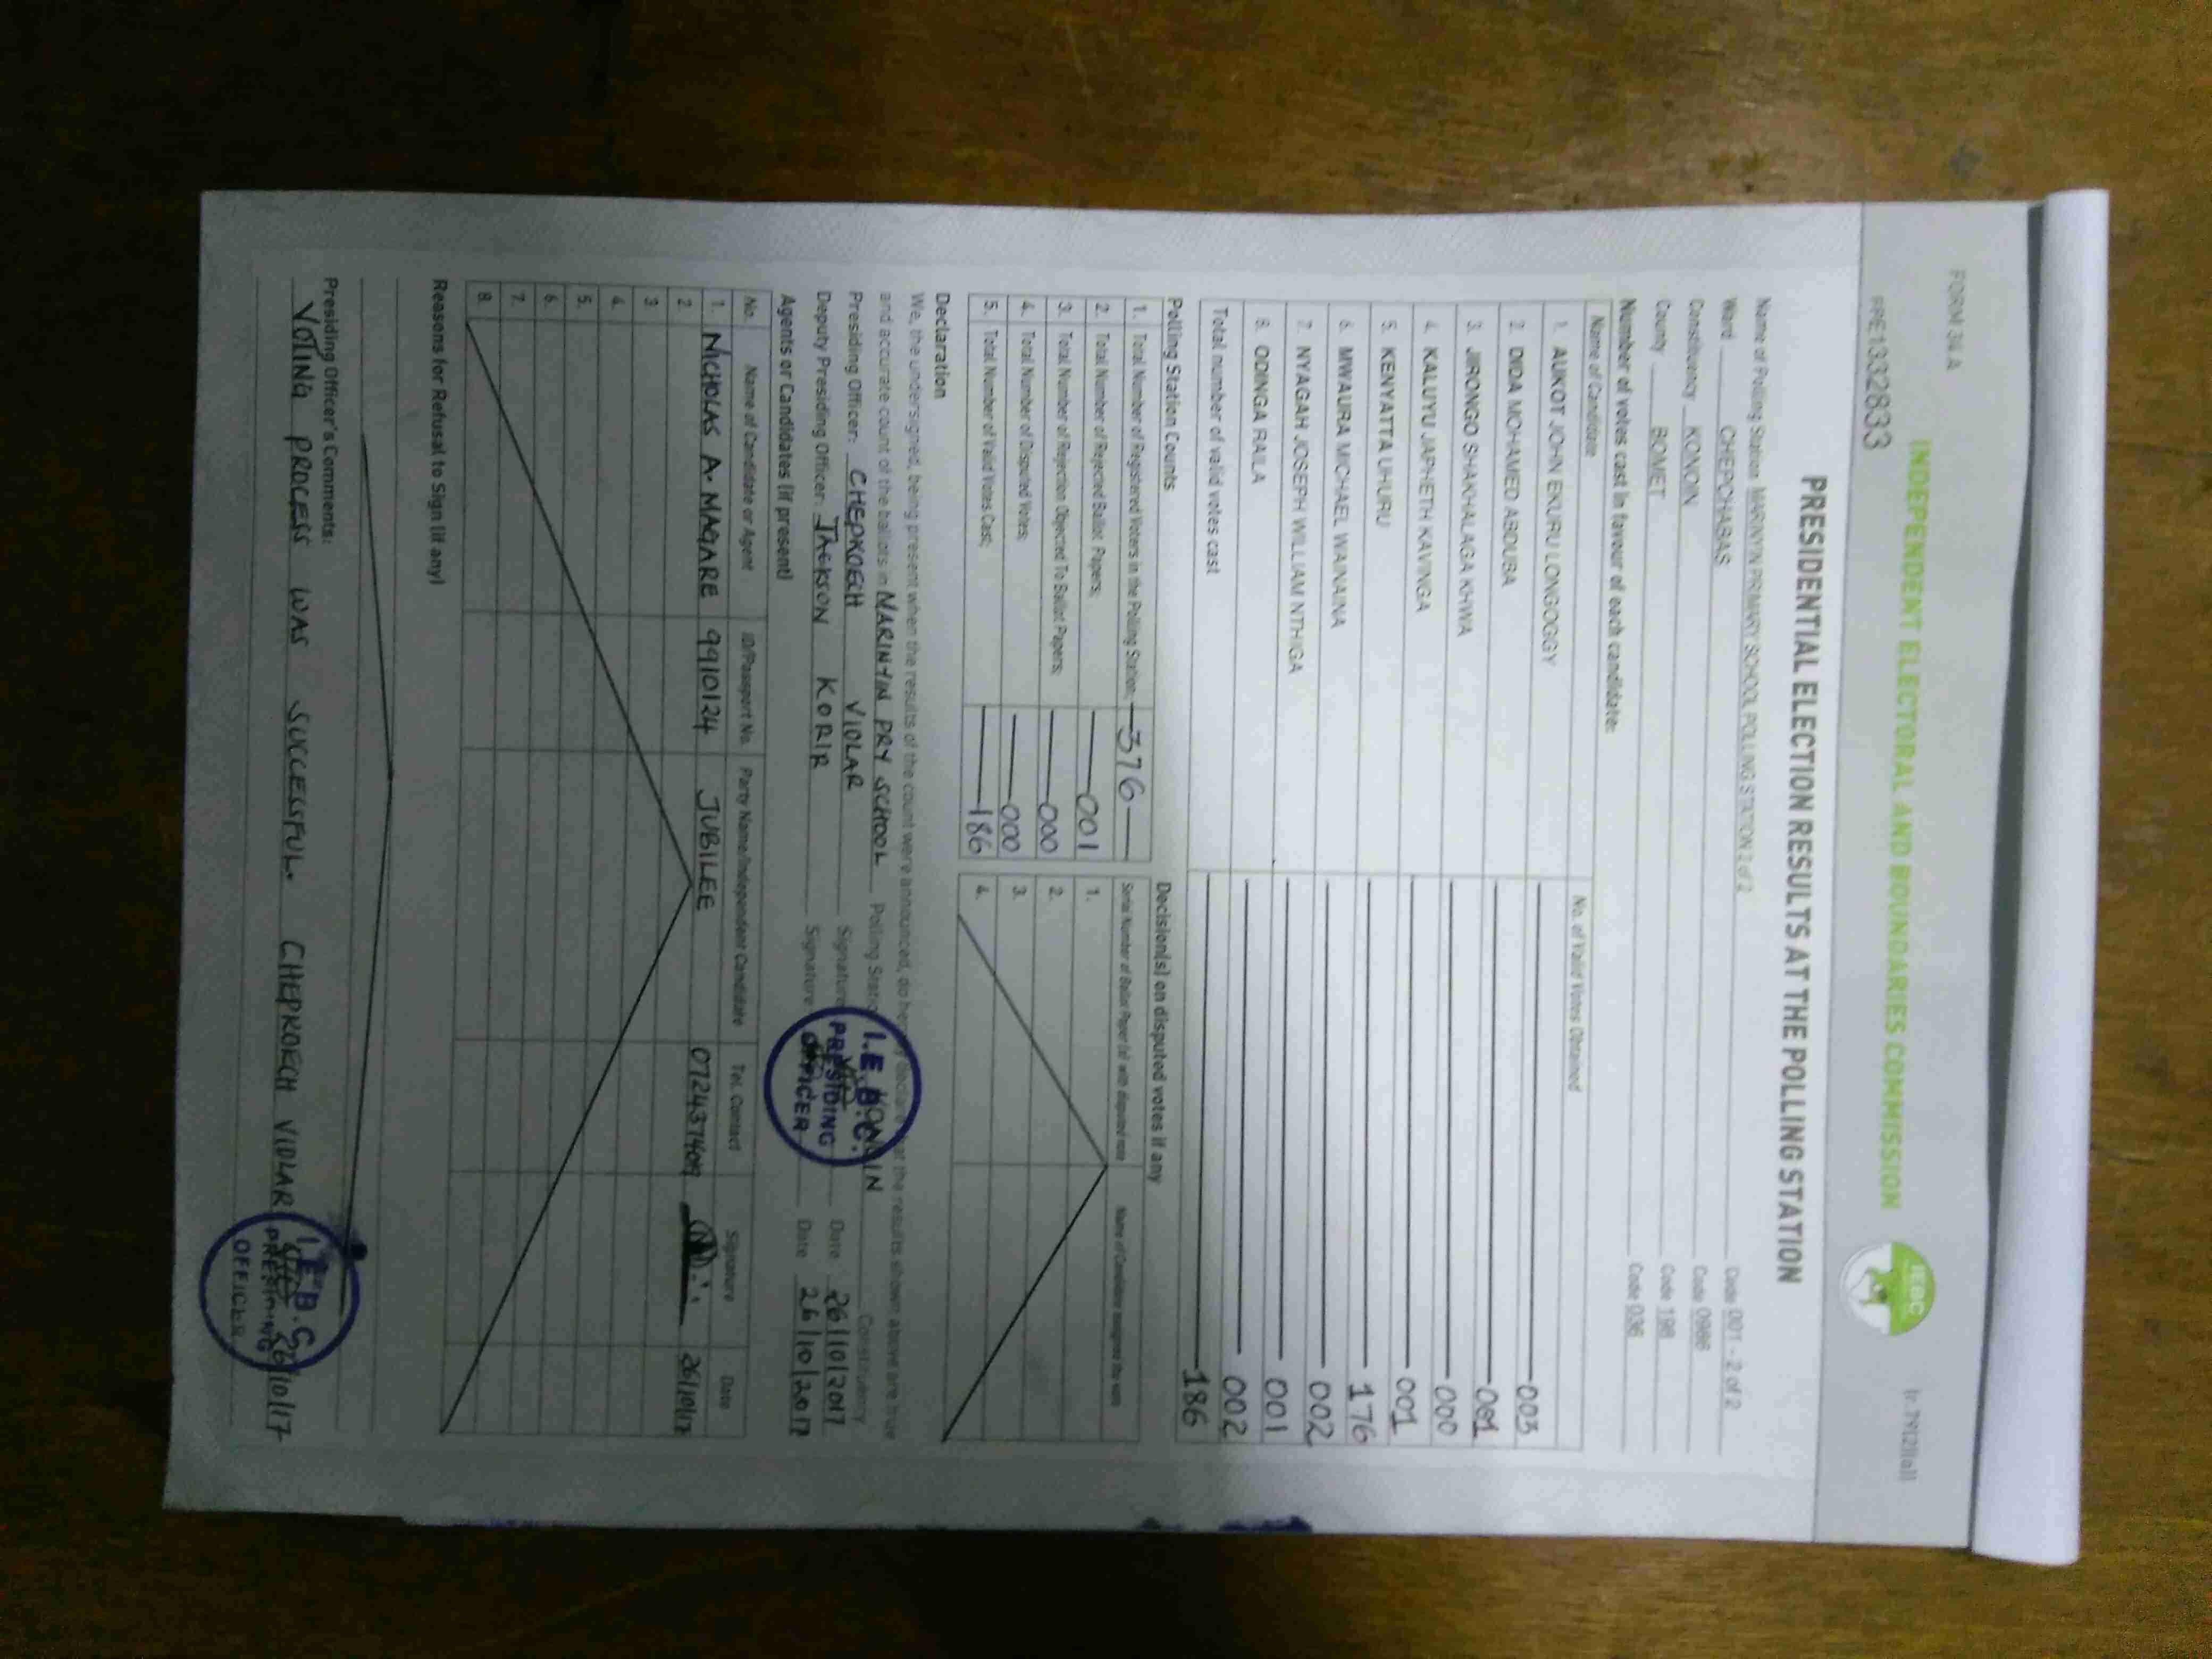 FORM 34 A
INDEPENDENT ELECTORAL AND BOUNDARIES COMMISSION
IEBC
PRE1332833
PRESIDENTIAL ELECTION RESULTS AT THE POLLING STATION
Name of Polling Station MARINYIN PRIMARY SCHOOL POLLING STATION 2 of 2 Code 001 - 2 of 2
Ward CHEPCHABAS Code 0986
Constituency KONOIN Code 198
County BOMET Code 036
Number of votes cast in favour of each candidate:
Name of Candidate No. of Valid Votes Obtained
1. AUKOT JOHN EKURU LONGOGGY 003
2. DIDA MOHAMED ABDUBA 001
3. JIRONGO SHAKHALAGA KHWA 000
4. KALUYU JAPHETH KAVINGA 001
5. KENYATTA UHURU 176
6. MWAURA MICHAEL WAINAINA 002
7. NYAGAH JOSEPH WILLIAM NTHIGA 001
8. ODINGA RAILA 002
Total number of valid votes cast 186
Polling Station Counts
1. Total Number of Registered Voters in the Polling Station; 376
2. Total Number of Rejected Ballot Papers; 001
3. Total Number of Rejection Objected To Ballot Papers; 000
4. Total Number of Disputed Votes; 000
5. Total Number of Valid Votes Cast; 186
Decision(s) on disputed votes if any
Serial Number of Ballot Paper (s) with disputed vote Name of Candidate
1.
2.
3.
4.
Declaration
We, the undersigned, being present when the results of the count were announced, do hereby declare that the results shown above are true
and accurate count of the ballots in MARINYIN PRY SCHOOL Polling Station KONOIN Constituency
Presiding Officer: CHEPKOECH VIOLAR Signature Date 26/10/2017
Deputy Presiding Officer: JACKSON KORIR Signature Date 26/10/2017
I.E.B.C. PRESIDING OFFICER
Agents or Candidates (if present)
No. Name of Candidate or Agent ID/Passport No. Party Name/Independent Candidate Tel. Contact Signature Date
1. NICHOLAS A. MAGARE 9910124 JUBILEE 26/10/17
2.
3.
4.
5.
6.
7.
8.
Reasons for Refusal to Sign (if any)
Presiding Officer's Comments:
VOTING PROCESS WAS SUCCESSFUL. CHEPKOECH VIOLAR 26/10/17
I.E.B.C. PRESIDING OFFICER